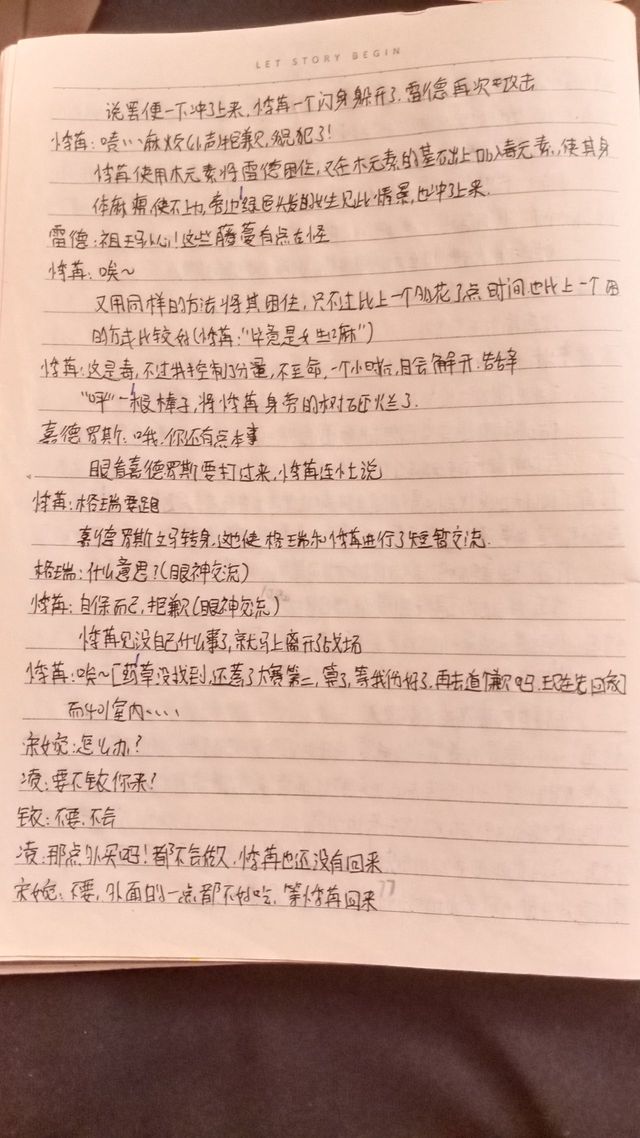 LET STORY BEGIN
说罢便一下冲了上来,悸苒一个闪身躲开了.雷德再次攻击
悸苒:啧、、麻烦(小声抱歉,冒犯了!
悸苒使用木元素将雷德困住,又在木元素的基础上加入毒元素,使其身
体麻痹,使不上力,旁边绿色头发的女生见此情景,也冲了上来.
雷德:祖玛小心!这些藤蔓有点古怪
悸苒:唉~
又用同样的方法将其困住,只不过比上一个多花了点时间.也比上一个困
的方式比较好(悸苒:"毕竟是女生口麻")
悸苒:这是毒,不过我控制了分量,不至命,一个小时后,自会解开.告辞
"呯"一根棒子,将悸苒身旁的树石砸烂了.
嘉德罗斯:哦,你还有点本事
眼看嘉德罗斯要打过来,悸苒连忙说
悸苒:格瑞要跑
嘉德罗斯立马转身,这也使格瑞和悸苒进行了短暂交流.
格瑞:什么意思?(眼神交流)
悸苒:自保而已,抱歉(眼神交流)
悸苒见没自己什么事了,就马上离开了战场
悸苒:唉~[药草没找到,还惹了大赛第二,算了,等我伤好了,再去道歉吧,现在先回家]
而401室内、、、
宋婉:怎么办?
凌:要不钕你来?
钕:不要,不会
凌:那点外买吧!都不会做,悸苒也还没有回来
宋婉:不要,外面的一点都不好吃,等悸苒回来
77